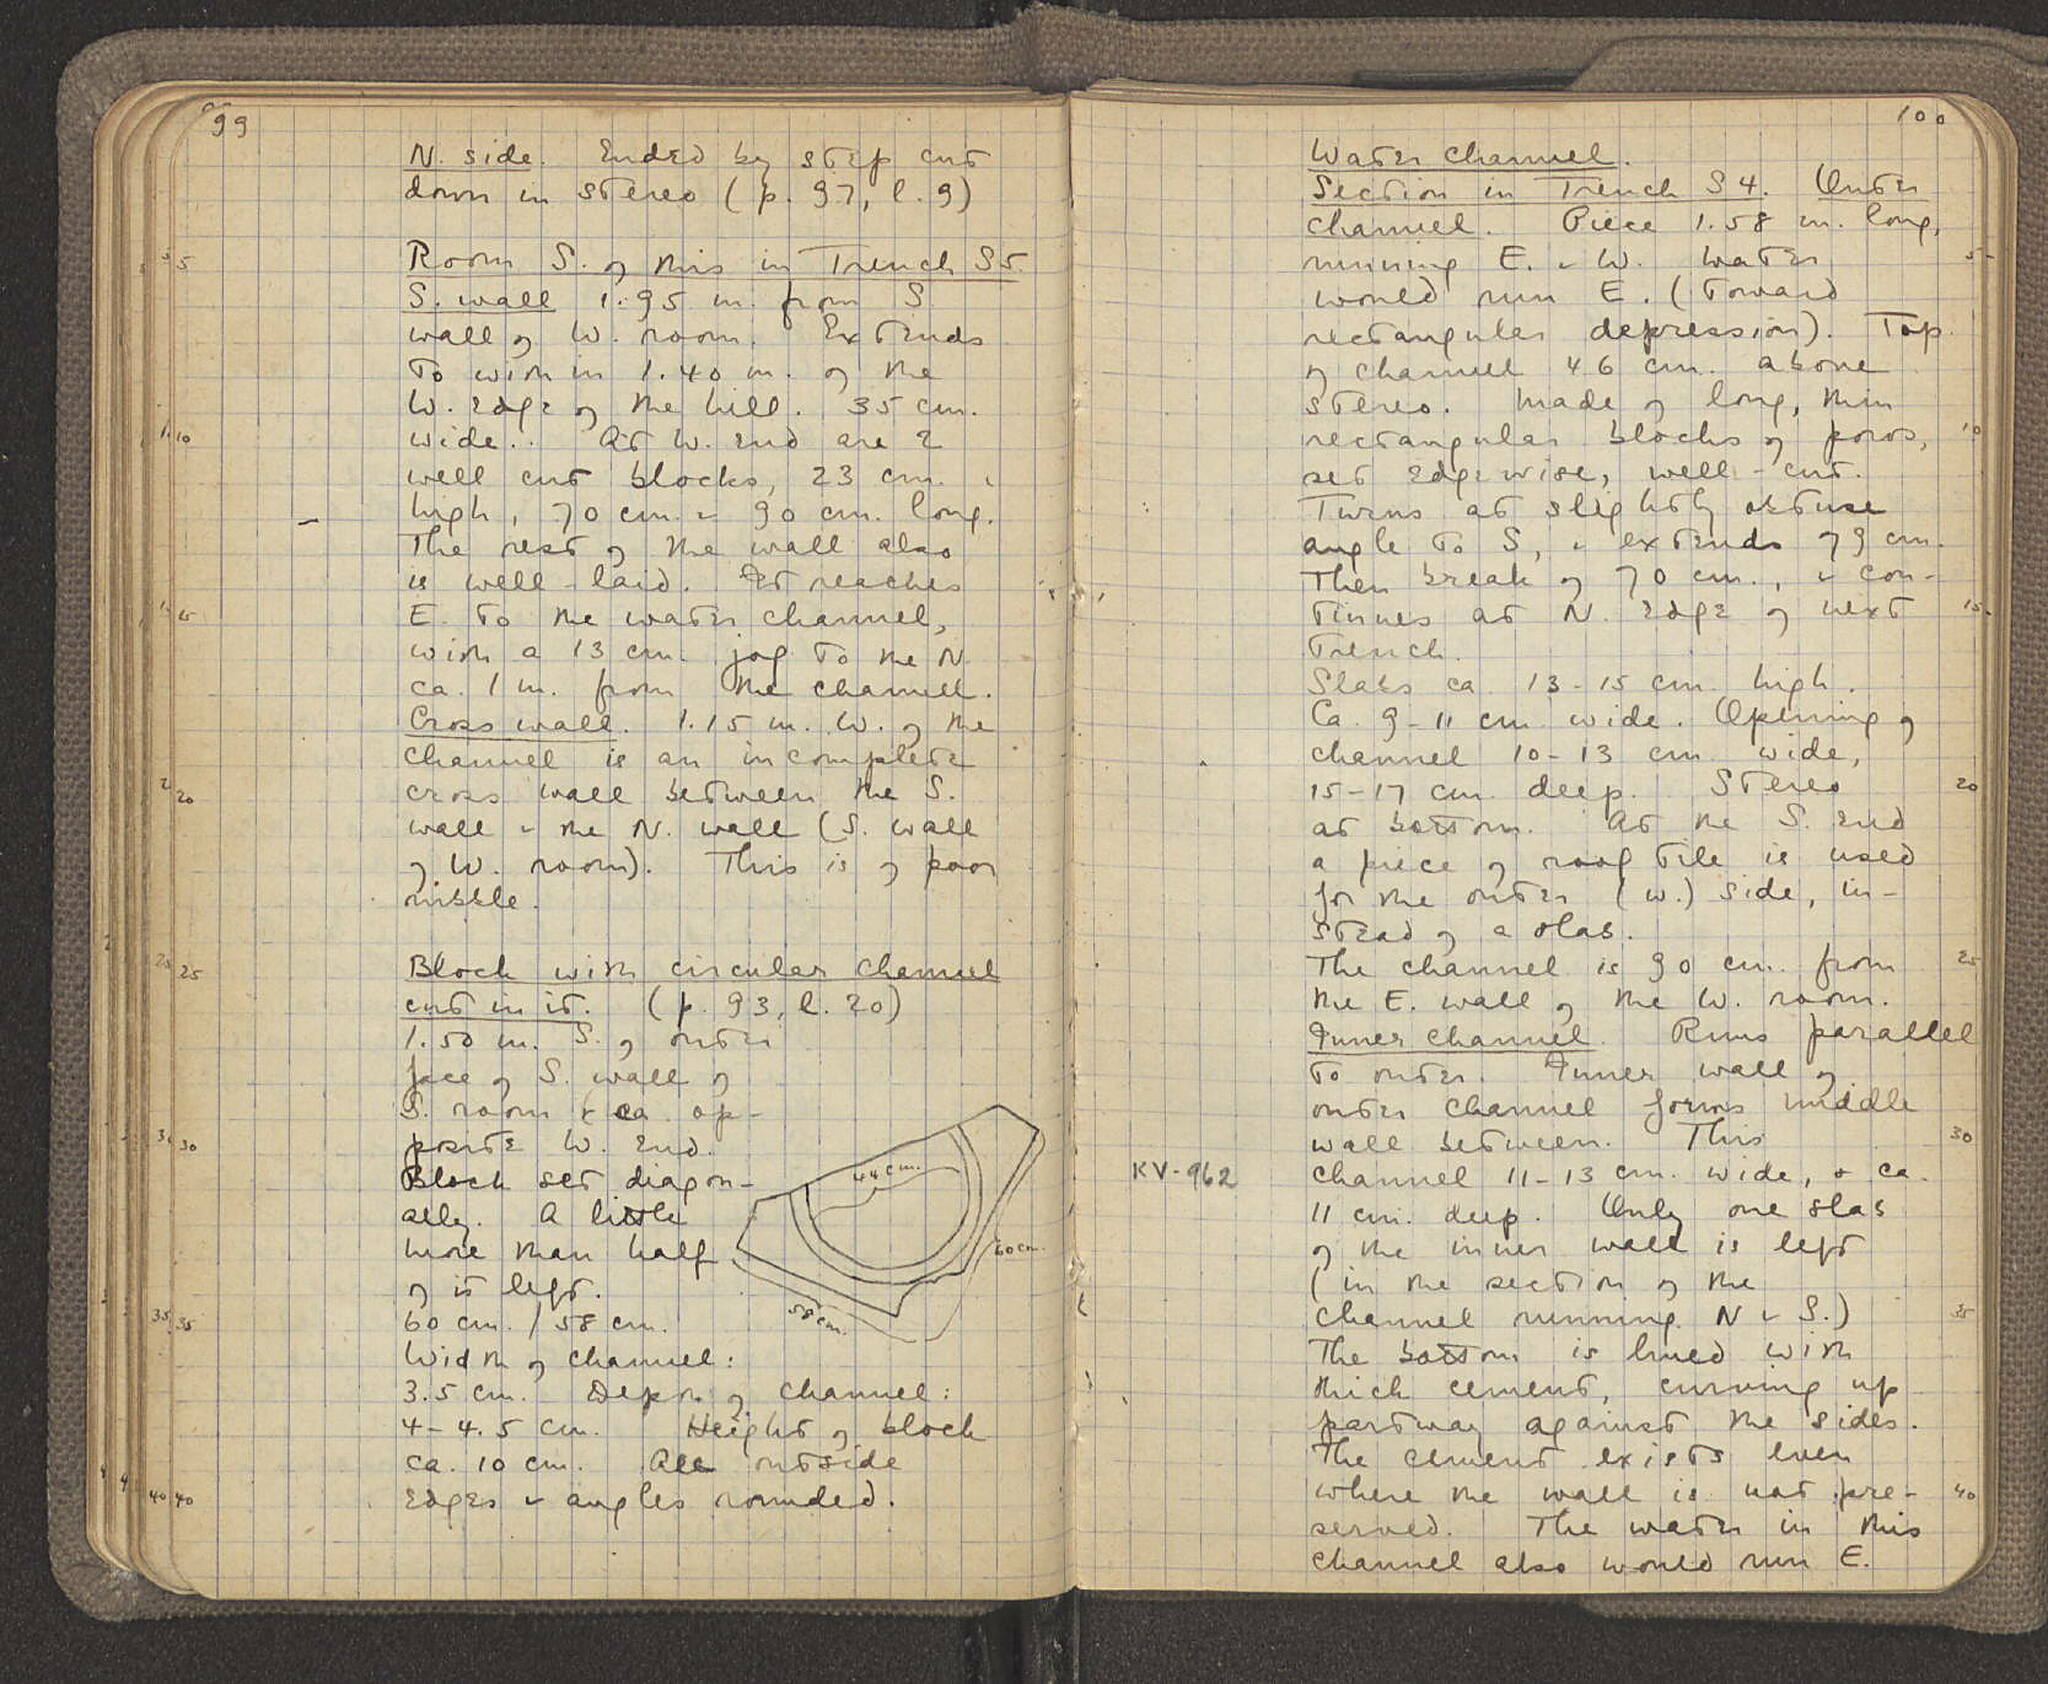 99
N. side. Ended by step cut
down in stereo (p. 97, l. 9)
5
Room S. of this in Trench S5.
S. wall 1.95 m. from S.
wall of W. room. Extends
to within 1.40 m. of the
W. edge of the hill. 35 cm.
10
wide. At W. end are 2
well cut blocks, 23 cm.
high, 70 cm. & 90 cm. long.
The rest of the wall also
is well-laid. It reaches
15
E. to the water channel,
with a 13 cm. jog to the N.
ca. 1 m. from the channel.
Cross wall. 1.15 m. W. of the
channel is an incomplete
20
cross wall between the S.
wall & the N. wall (S. wall
of W. room). This is of poor
rubble.
25
Block with circular channel
cut in it. (p. 93, l. 20)
1.50 m. S. of outer
face of S. wall of
S. room & ca. op-
30
posite W. end.
Block set diagon-
ally. A little
more than half
of it left.
35
60 cm. / 58 cm.
Width of channel:
3.5 cm. Depth of channel:
4-4.5 cm. Height of block
ca. 10 cm. All outside
40
edges & angles rounded.
44 cm.
60 cm.
58 cm.
100
Water channel.
Section in Trench S4. Outer
channel. Piece 1.58 m. long,
running E. & W. Water 5
would run E. (toward
rectangular depression). Top
of channel 46 cm. above
stereo. Made of long, thin
rectangular blocks of poros, 10
set edgewise, well-cut.
Turns at slightly obtuse
angle to S, & extends 79 cm.
Then break of 70 cm., & con-
tinues at N. edge of next 15
trench.
Slabs ca. 13-15 cm. high.
Ca. 9-11 cm. wide. Opening of
channel 10-13 cm. wide,
15-17 cm. deep. Stereo 20
at bottom. At the S. end
a piece of roof tile is used
for the outer (w.) side, in-
stead of a slab.
The channel is 90 cm. from 25
the E. wall of the W. room.
Inner channel. Runs parallel
to outer. Inner wall of
outer channel forms middle
wall between. This 30
KV-962 channel 11-13 cm. wide, & ca.
11 cm. deep. Only one slab
of the inner wall is left
(in the section of the
channel running N & S.) 35
The bottom is lined with
thick cement, curving up
partway against the sides.
The cement exists even
where the wall is not pre- 40
served. The water in this
channel also would run E.